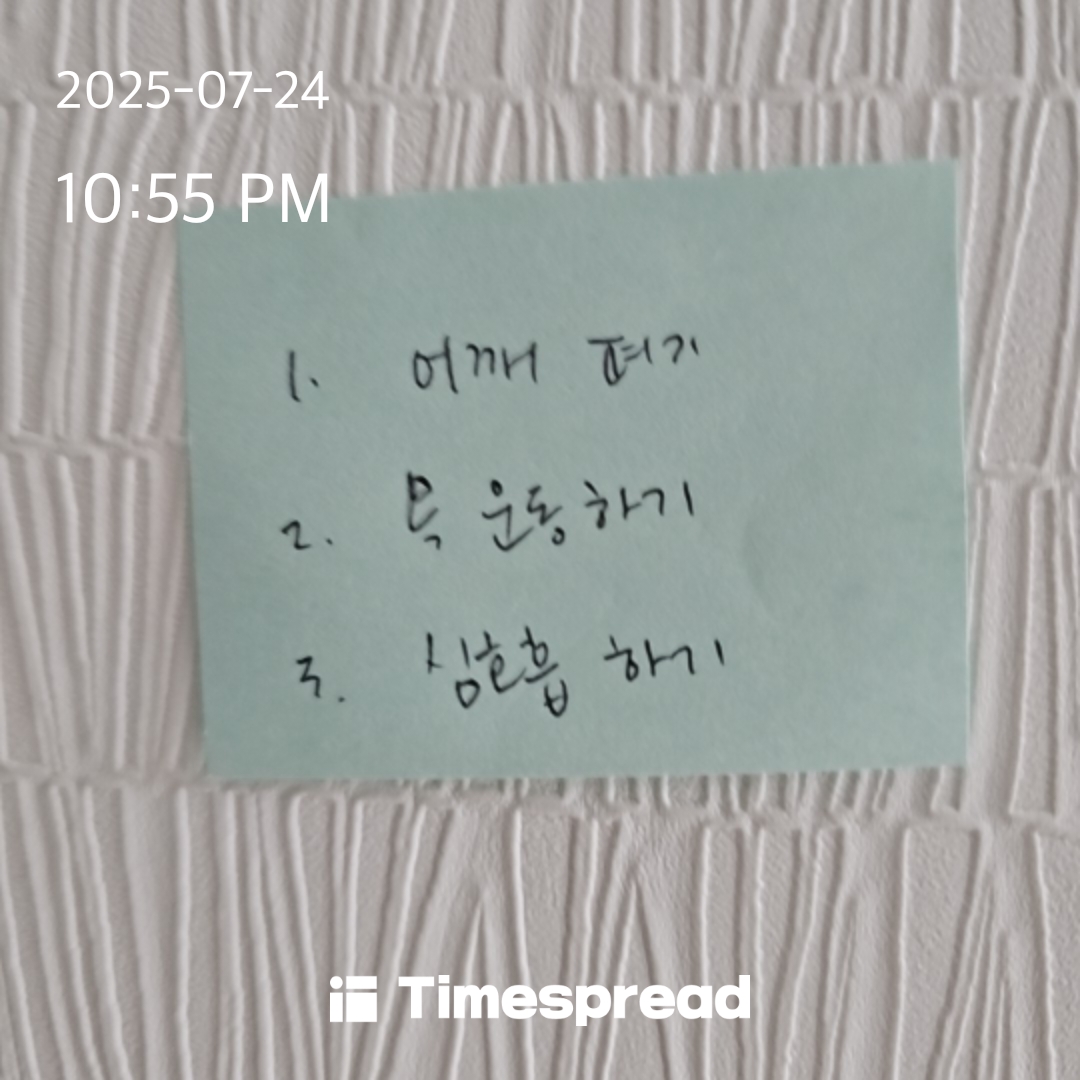 2025-07-24
10:55 PM
1. 어깨 펴기
2. 목 운동하기
3. 심호흡 하기
Timespread